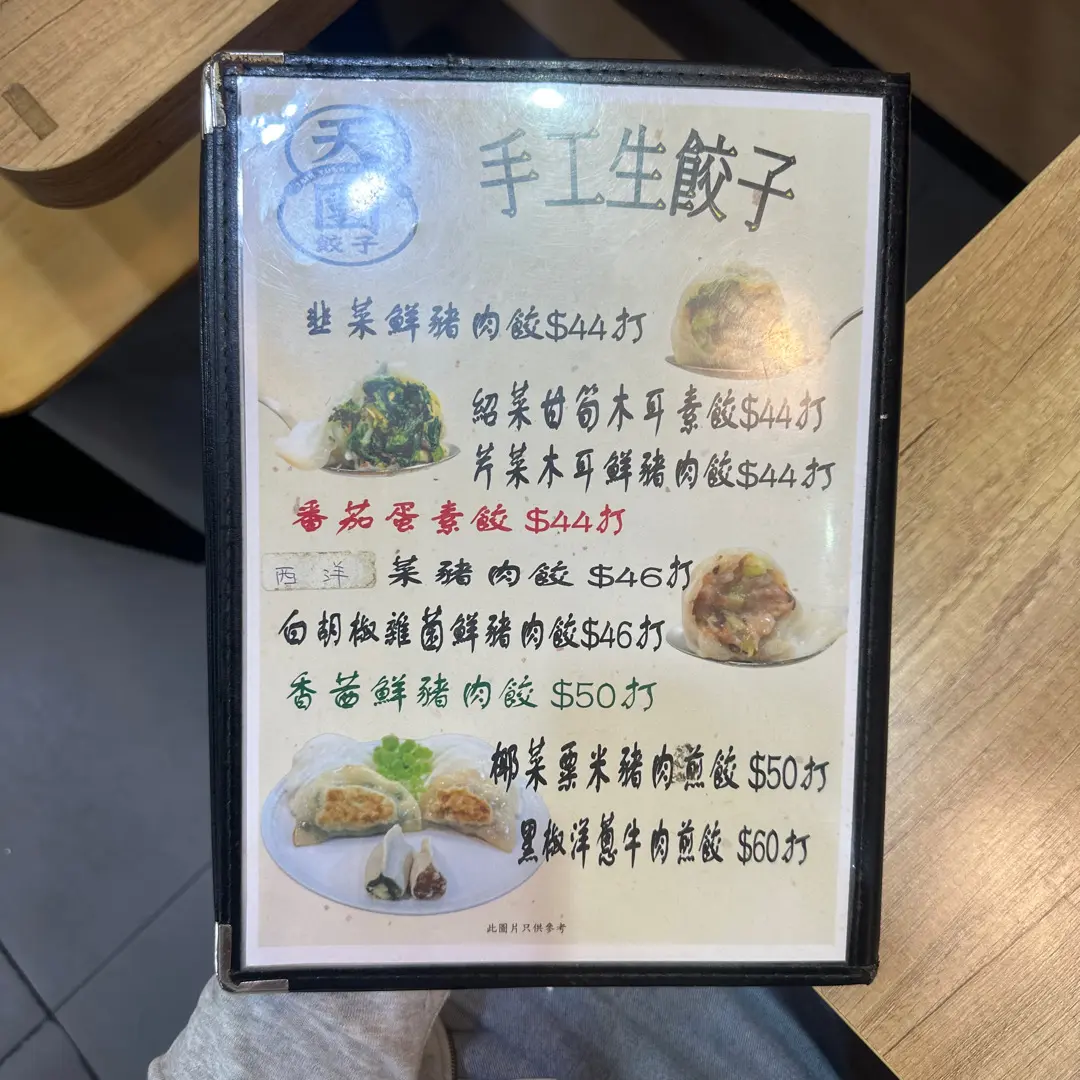 天
園
餃子
手工生餃子
韭菜鮮豬肉餃$44打
紹菜甘筍木耳素餃$44打
芹菜木耳鮮豬肉餃$44打
番茄蛋素餃 $44打
西洋菜豬肉餃 $46打
白胡椒雜菌鮮豬肉餃$46打
香茜鮮豬肉餃 $50打
椰菜粟米豬肉煎餃 $50打
黑椒洋蔥牛肉煎餃 $60打
此圖片只供參考